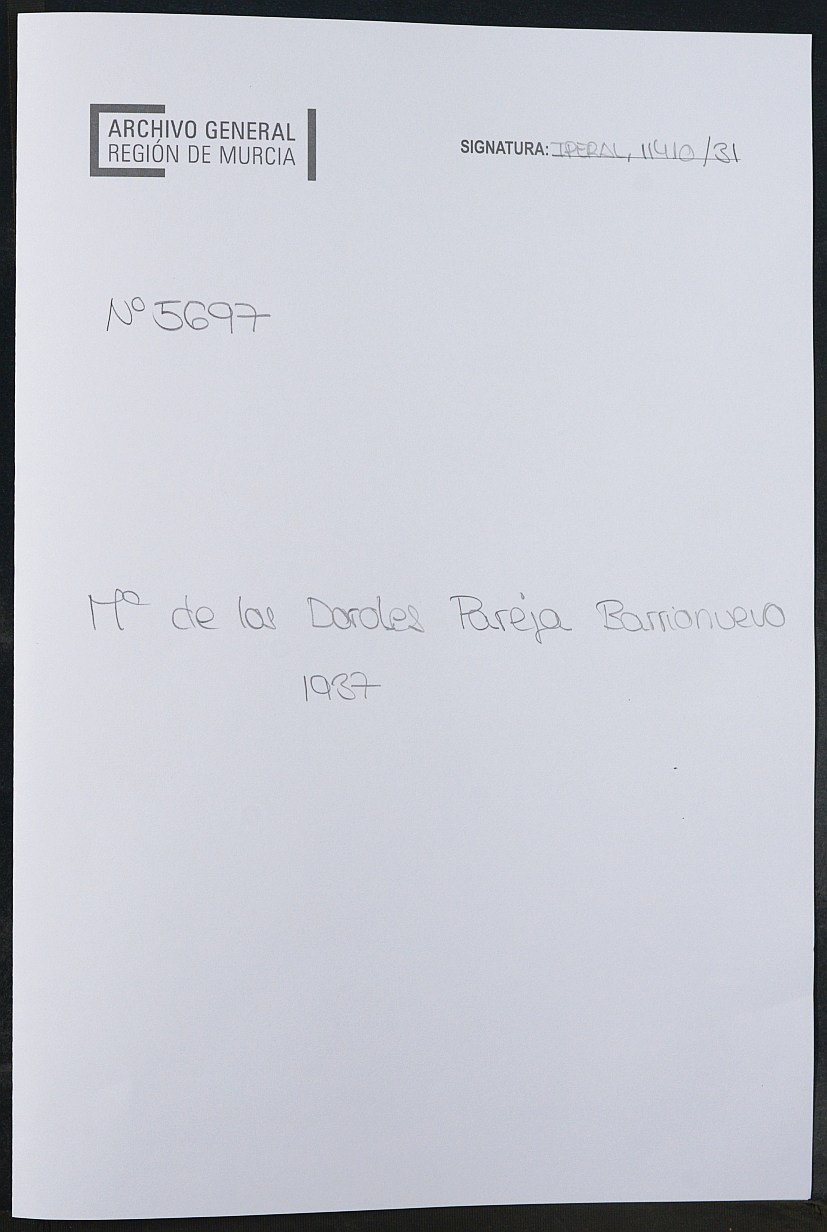 ARCHIVO GENERAL
REGIÓN DE MURCIA
SIGNATURA: IPERAL, 11410/31
Nº 5697
Mª de los Doroles Pareja Barrionuevo
1937